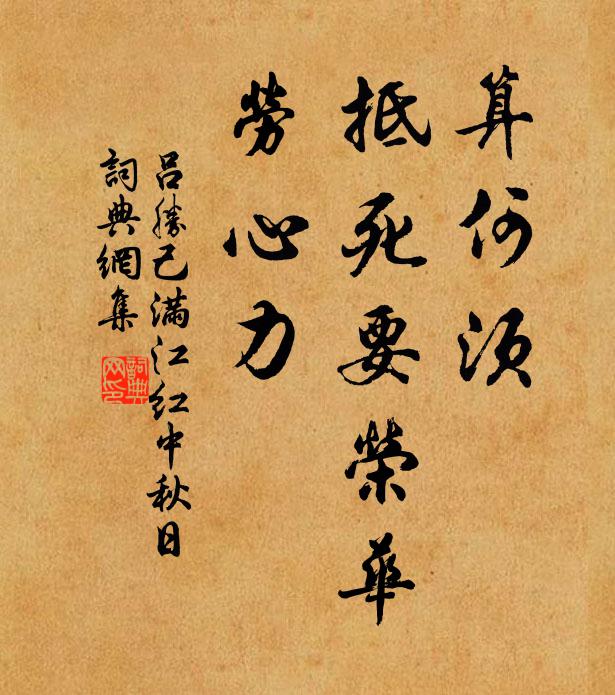 算何須
抵死要榮華
勞心力
呂勝己滿江紅中秋日
詞典網集
詞典网印